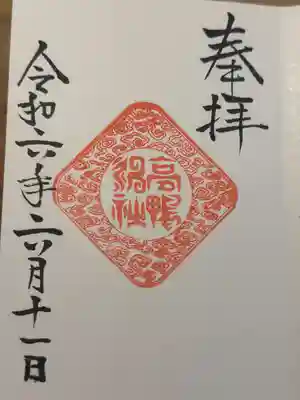 奉拝
高鴨
神社
令和六年六月十一日